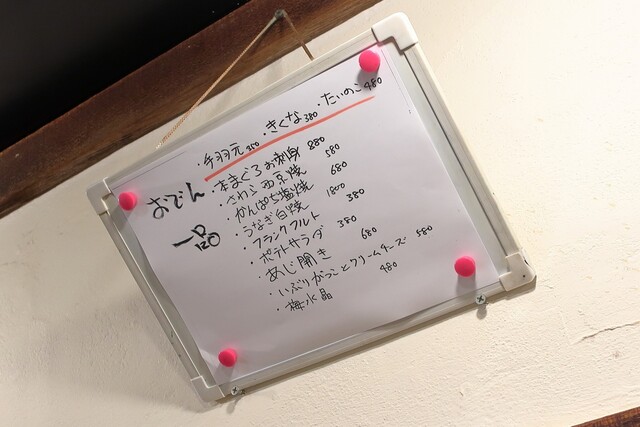 おでん
・手羽元 250 ・きくな 380 ・たいのこ 480
一品 120
・本まぐろお刺身 880
・さわら西京焼 580
・かんぱち塩焼 680
・うなぎ白焼 1800
・フランクフルト 380
・ポテトサラダ 380
・あじ開き 680
・いぶりがっことクリームチーズ 580
・梅水晶 480